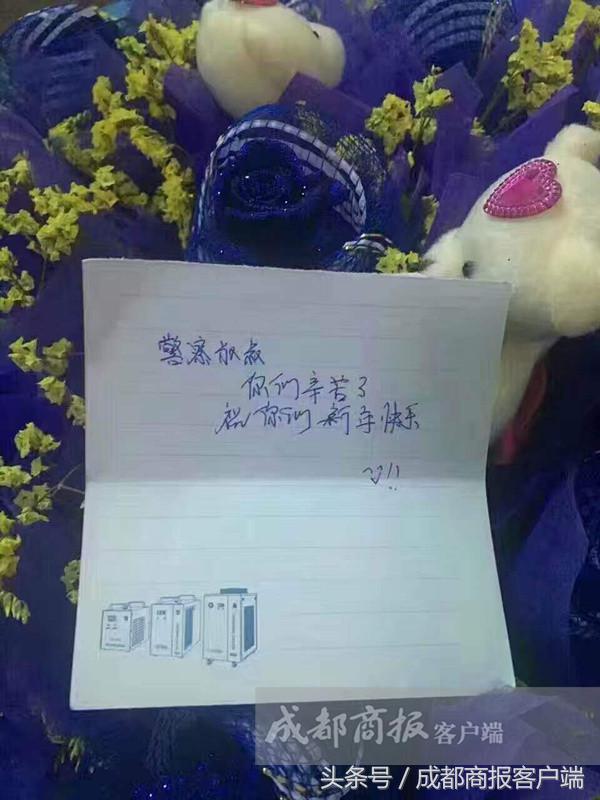 警察叔叔
你们辛苦了
祝你们新年快乐
!!
成都商报客户端
头条号／成都商报客户端